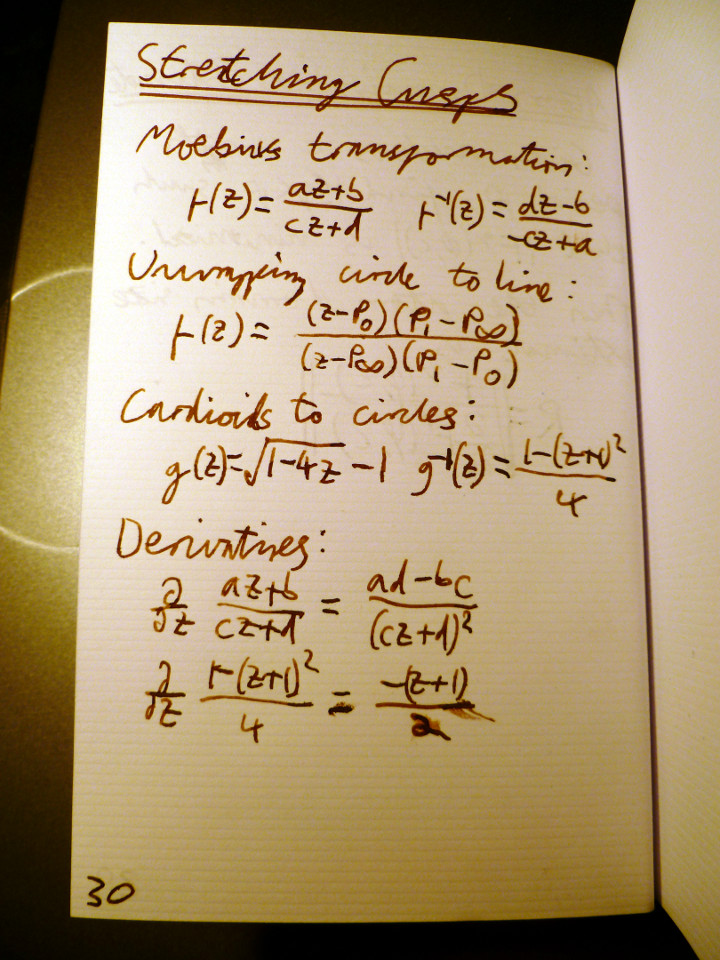 Stretching Cusps
Moebius transformation:
f(z) = (az+b)/(cz+d)   f⁻¹(z) = (dz-b)/(-cz+a)
Unwrapping circle to line:
f(z) = (z-P₀)(P₁-P∞)/(z-P∞)(P₁-P₀)
Cardioids to circles:
g(z) = √(1-4z) - 1   g⁻¹(z) = (1-(z+1)²)/4
Derivatives:
∂/∂z (az+b)/(cz+d) = (ad-bc)/(cz+d)²
∂/∂z (1-(z+1)²)/4 = -(z+1)/2
30